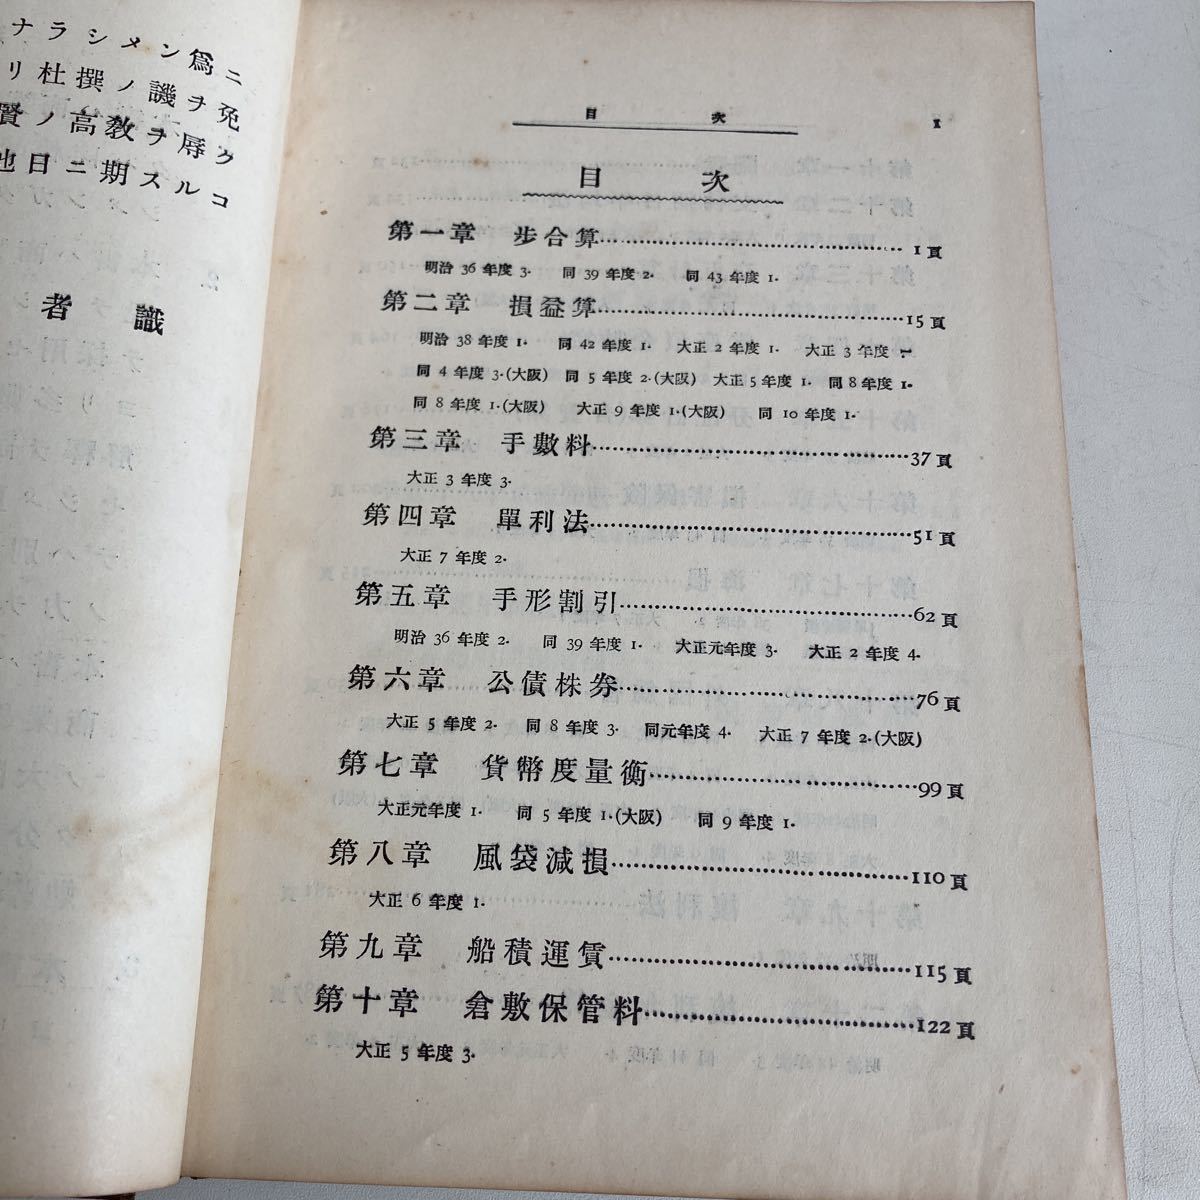 ニ爲ンメシラナ
免ヲ譏ノ撰杜リ
ク辱ヲ敎高ノ賢
コルス期ニ日他
識者
目次 1
目次
第一章 步合算 1頁
明治36年度3. 同39年度2. 同43年度1.
第二章 損益算 15頁
明治38年度1. 同42年度1. 大正2年度1. 大正3年度1.
同4年度3.(大阪) 同5年度2.(大阪) 大正5年度1. 同8年度1.
同8年度1.(大阪) 大正9年度1.(大阪) 同10年度1.
第三章 手數料 37頁
大正3年度3.
第四章 單利法 51頁
大正7年度2.
第五章 手形割引 62頁
明治36年度2. 同39年度1. 大正元年度3. 大正2年度4.
第六章 公債株券 76頁
大正5年度2. 同8年度3. 同元年度4. 大正7年度2.(大阪)
第七章 貨幣度量衡 99頁
大正元年度1. 同5年度1.(大阪) 同9年度1.
第八章 風袋減損 110頁
大正6年度1.
第九章 船積運賃 115頁
第十章 倉敷保管料 122頁
大正5年度3.